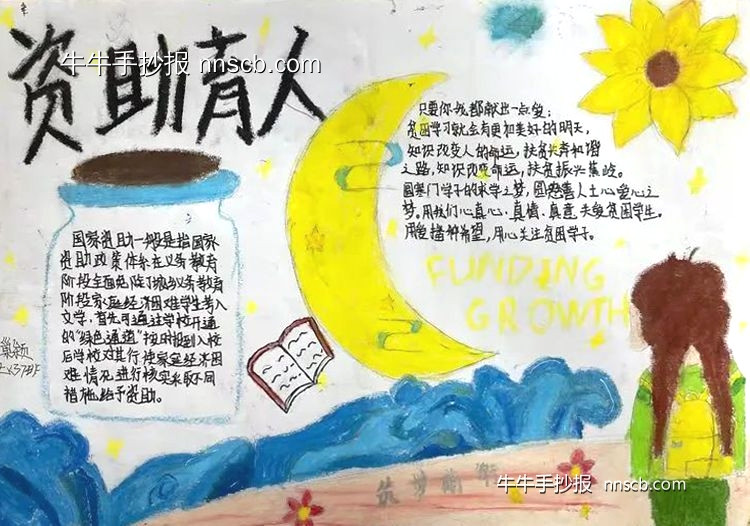 资助育人
牛牛手抄报 nnscb.com
只要你我都献出一点爱；
贫困学习就会有更加美好的明天，
知识改变人的命运，扶贫共奔和谐
之路，知识改变命运，扶贫振兴蕉岭。
圆寒门学子的求学之梦，圆慈善人士心爱心之
梦。用我们心真心、真情、真意关爱贫困学生。
用爱播种希望，用心关注贫困学子。
FUNDING
GROWTH
国家资助一般是指国家
资助政策体系在义务教育
阶段全面免除了城乡义务教育
阶段家庭经济困难学生考入
大学，首先可通过学校开通
的“绿色通道”按时报到入校
后学校对其行使家庭经济困
难情况进行核实采取不同
措施给予资助。
筑梦
牛牛手抄报 nnscb.com